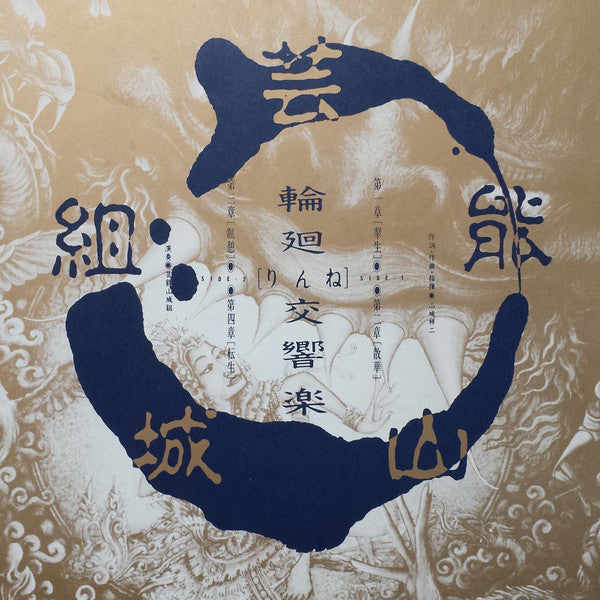 芸
能
山
城
組
作詞・作曲・指揮●山城祥二
第一章[翠生]●●第二章[散華]
SIDE-1
輪廻交響楽
[りんね]
SIDE-2
第三章[瞑憩]●●第四章[転生]
演奏●芸能山城組